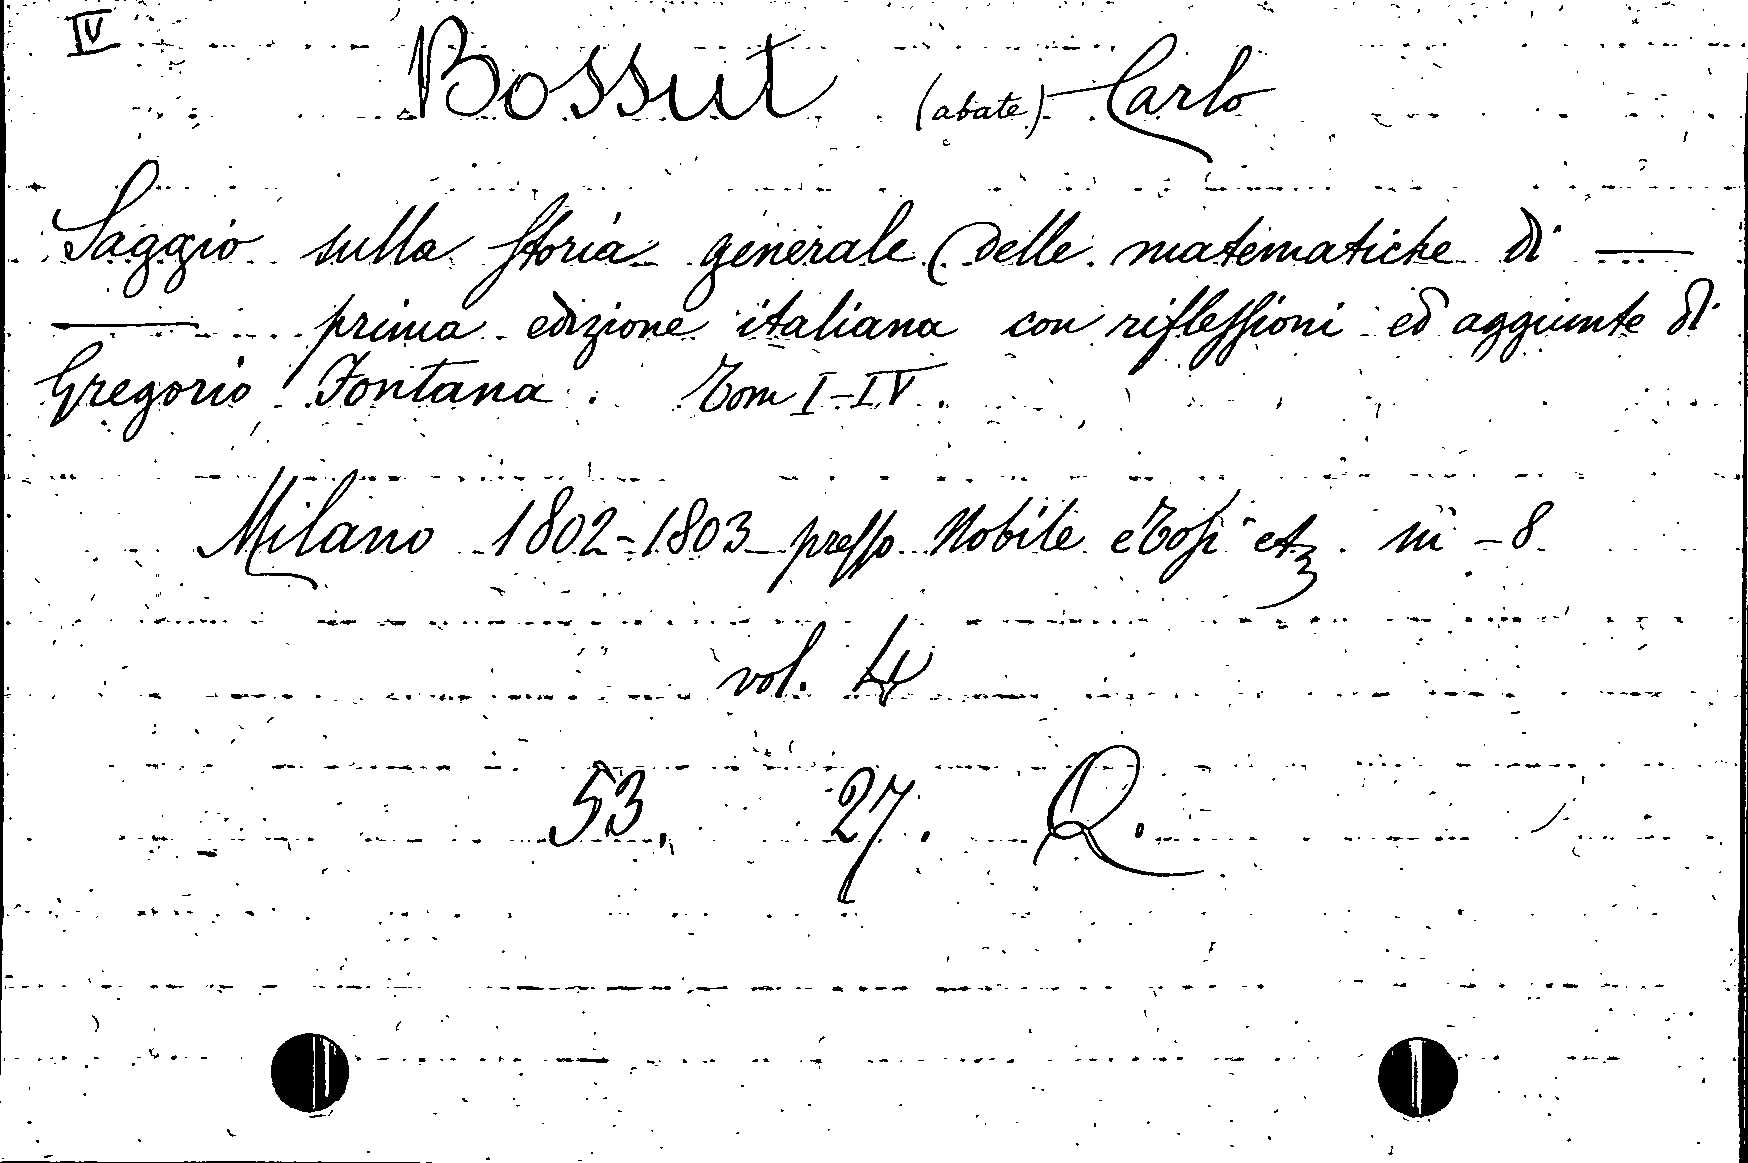 IV
Bossut (abate) Carlo
Saggio sulla storia generale delle matematiche di ——
—— prima edizione italiana con riflessioni ed aggiunte di
Gregorio Fontana. Tom I-IV.
Milano 1802-1803 presso Nobile e Tosi in-8
vol. 4
53. 27. Q.